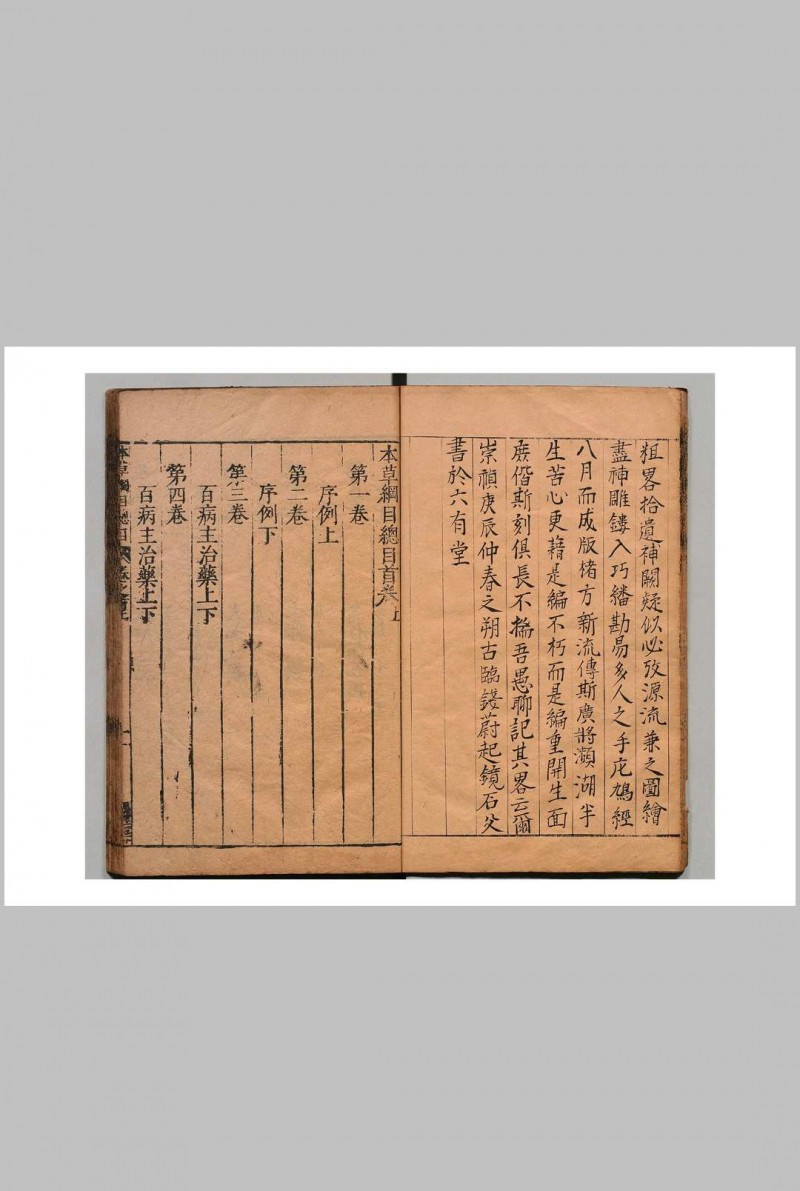 粗畧拾遺神闕疑似必攷源流兼之圖繪
盡神雕鏤入巧繙勘易多人之手庀鳩經
八月而成版楮方新流傳斯廣將瀕湖半
生苦心更藉是編不朽而是編重開生面
庶偕斯刻俱長不揣吾愚聊記其畧云爾
崇禎庚辰仲春之朔古臨錢蔚起鏡石父
書於六有堂
本草綱目總目首卷上
第一卷
序例上
第二卷
序例下
第三卷
百病主治藥上下
第四卷
百病主治藥上下
本草綱目總目